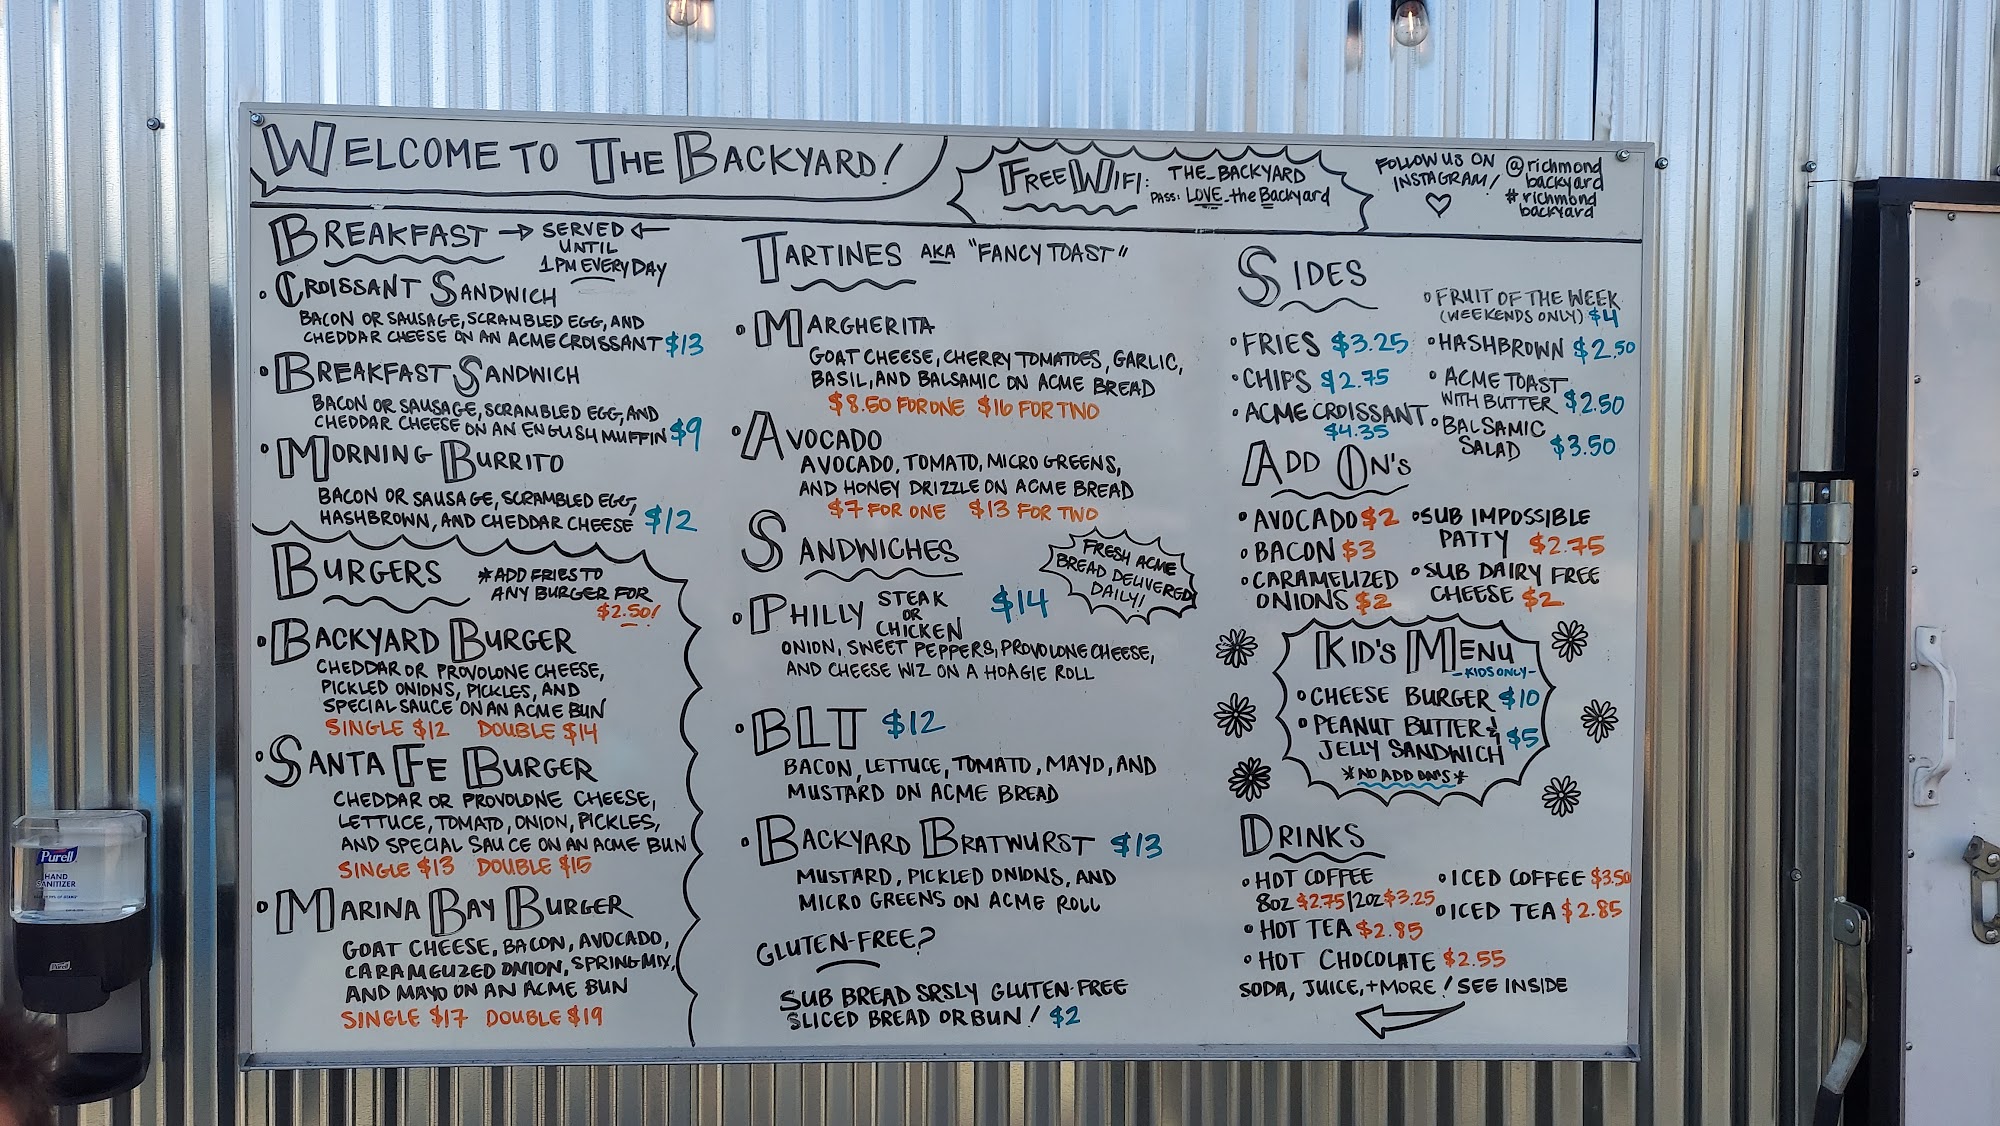 WELCOME TO THE BACKYARD!
FREE WIFI: THE_BACKYARD
PASS: LOVE_the Backyard
FOLLOW US ON
INSTAGRAM!
@richmond
backyard
#richmond
backyard
BREAKFAST → SERVED ←
UNTIL
1PM EVERY DAY
• CROISSANT SANDWICH
BACON OR SAUSAGE, SCRAMBLED EGG, AND
CHEDDAR CHEESE ON AN ACME CROISSANT $13
• BREAKFAST SANDWICH
BACON OR SAUSAGE, SCRAMBLED EGG, AND
CHEDDAR CHEESE ON AN ENGLISH MUFFIN $9
• MORNING BURRITO
BACON OR SAUSAGE, SCRAMBLED EGG,
HASHBROWN, AND CHEDDAR CHEESE $12
BURGERS
*ADD FRIES TO
ANY BURGER FOR
$2.50!
• BACKYARD BURGER
CHEDDAR OR PROVOLONE CHEESE,
PICKLED ONIONS, PICKLES, AND
SPECIAL SAUCE ON AN ACME BUN
SINGLE $12 DOUBLE $14
• SANTA FE BURGER
CHEDDAR OR PROVOLONE CHEESE,
LETTUCE, TOMATO, ONION, PICKLES,
AND SPECIAL SAUCE ON AN ACME BUN
SINGLE $13 DOUBLE $15
• MARINA BAY BURGER
GOAT CHEESE, BACON, AVOCADO,
CARAMELIZED ONION, SPRING MIX,
AND MAYO ON AN ACME BUN
SINGLE $17 DOUBLE $19
TARTINES AKA "FANCY TOAST"
• MARGHERITA
GOAT CHEESE, CHERRY TOMATOES, GARLIC,
BASIL, AND BALSAMIC ON ACME BREAD
$8.50 FOR ONE $16 FOR TWO
• AVOCADO
AVOCADO, TOMATO, MICRO GREENS,
AND HONEY DRIZZLE ON ACME BREAD
$7 FOR ONE $13 FOR TWO
SANDWICHES
FRESH ACME
BREAD DELIVERED
DAILY!
• PHILLY STEAK OR CHICKEN $14
ONION, SWEET PEPPERS, PROVOLONE CHEESE,
AND CHEESE WIZ ON A HOAGIE ROLL
• BLT $12
BACON, LETTUCE, TOMATO, MAYO, AND
MUSTARD ON ACME BREAD
• BACKYARD BRATWURST $13
MUSTARD, PICKLED ONIONS, AND
MICRO GREENS ON ACME ROLL
GLUTEN-FREE?
SUB BREAD SRSLY GLUTEN-FREE
SLICED BREAD OR BUN! $2
SIDES
• FRUIT OF THE WEEK
(WEEKENDS ONLY) $4
• FRIES $3.25
• HASHBROWN $2.50
• CHIPS $2.75
• ACME TOAST
WITH BUTTER $2.50
• ACME CROISSANT
$4.35
• BALSAMIC
SALAD $3.50
ADD ON'S
• AVOCADO $2
• BACON $3
• CARAMELIZED
ONIONS $2
• SUB IMPOSSIBLE
PATTY $2.75
• SUB DAIRY FREE
CHEESE $2
KID'S MENU
-KIDS ONLY-
• CHEESE BURGER $10
• PEANUT BUTTER &
JELLY SANDWICH $5
*NO ADD ON'S*
DRINKS
• HOT COFFEE
8OZ $2.75|12OZ $3.25
• ICED COFFEE $3.50
• ICED TEA $2.85
• HOT TEA $2.85
• HOT CHOCOLATE $2.55
SODA, JUICE, + MORE! SEE INSIDE
Purell
HAND
SANITIZER